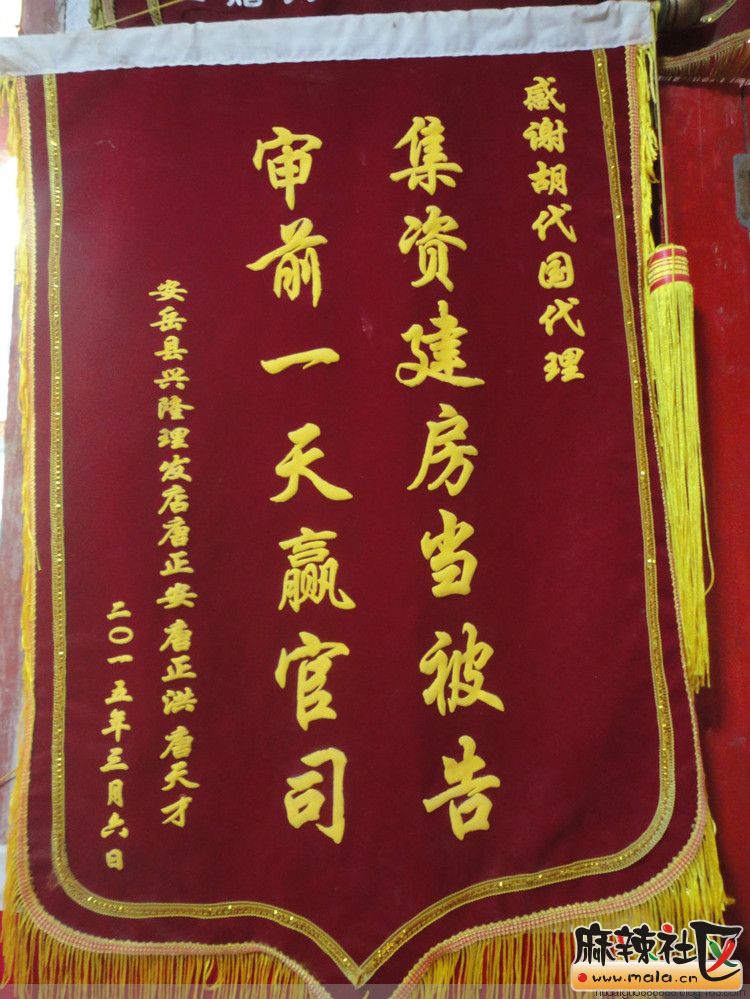 感谢胡代国代理
集资建房当被告
审前一天赢官司
安岳县兴隆理发店唐正安唐正洪唐天才
二〇一五年三月六日
麻辣社区
www.mala.cn